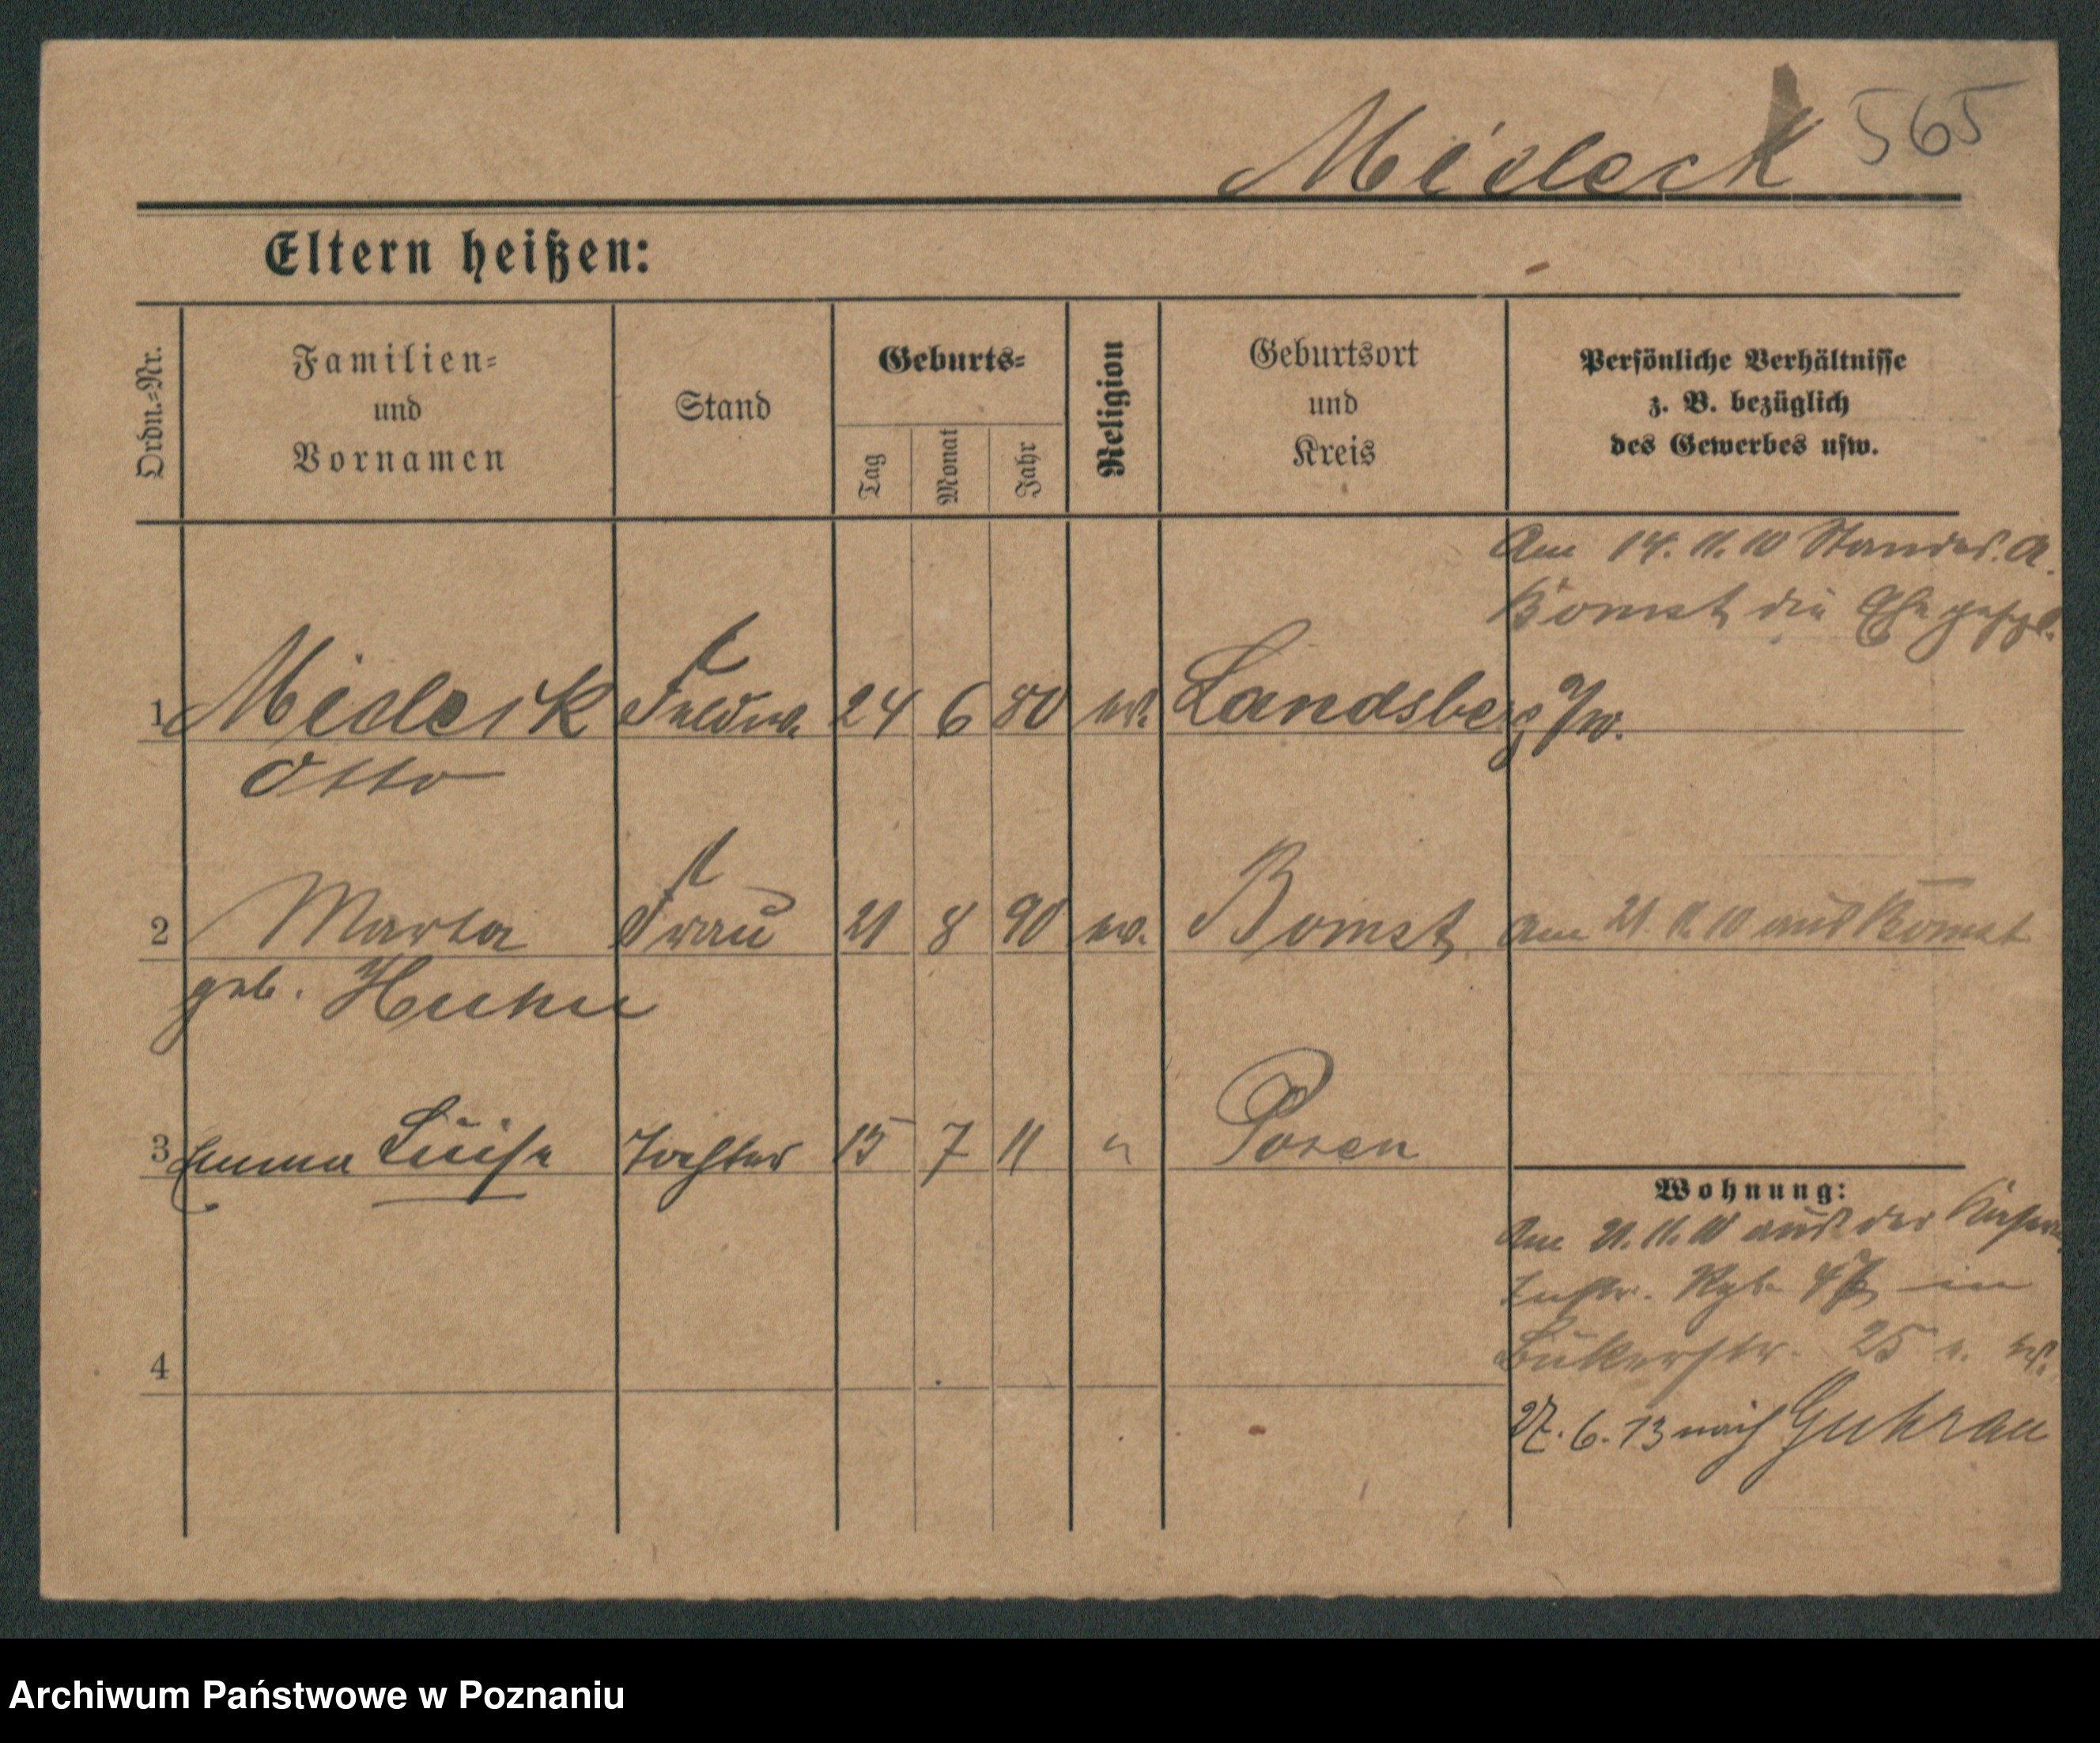 Mideck 565
Eltern heißen:
Ordn.=Nr.
Familien=
und
Vornamen
Stand
Geburts=
Tag
Monat
Jahr
Religion
Geburtsort
und
Kreis
Persönliche Verhältnisse
z. B. bezüglich
des Gewerbes usw.
Am 14. 11. 10 Standes. A.
Bomst die Ehe geschl.
1 Mideck Feldw. 24 6 80 ev. Landsberg a/w.
Otto
2 Marta Frau 21 8 90 ev. Bomst Am 21. 11. 10 aus Bomst
geb. Huhn
3 Emma Luise Tochter 15 7 11 " Posen
Wohnung:
Am 21. 11. 10 aus der
Inftr. Rgt. 47 in
Bukerstr. 25
4
27. 6. 13 nach Guhrau
Archiwum Państwowe w Poznaniu